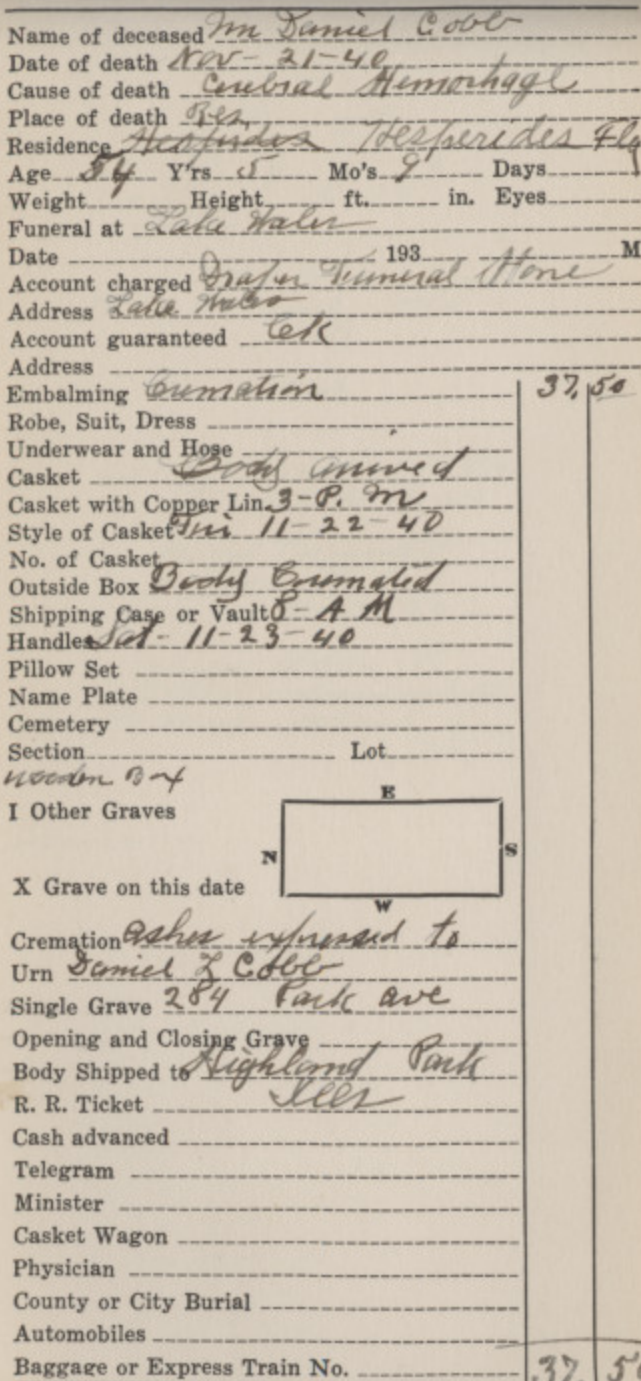 Name of deceased Mr Daniel Cobb
Date of death Nov - 21-40
Cause of death Cerebral Hemorhage
Place of death Res
Residence Hesperides Hesperides Fla
Age 54 Y'rs 5 Mo's 9 Days
Weight Height ft. in. Eyes
Funeral at Lake Wales
Date 193 M
Account charged Draper Funeral Home
Address Lake Wales
Account guaranteed OK
Address
Embalming Cremation 37.50
Robe, Suit, Dress
Underwear and Hose
Casket Body arrived
Casket with Copper Lin. 3-P. M
Style of Casket Fri 11-22-40
No. of Casket
Outside Box Body Cremated
Shipping Case or Vault 8-A M
Handles Sat- 11-23-40
Pillow Set
Name Plate
Cemetery
Section Lot
wooden Box
I Other Graves
E
N S
X Grave on this date
W
Cremation ashes expressed to
Urn Daniel L Cobb
Single Grave 284 Park ave
Opening and Closing Grave
Body Shipped to Highland Park
R. R. Ticket Ills
Cash advanced
Telegram
Minister
Casket Wagon
Physician
County or City Burial
Automobiles
Baggage or Express Train No. 37 50